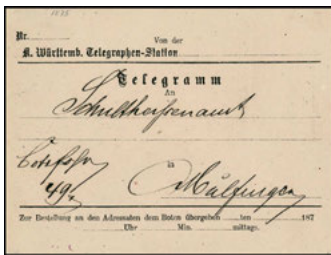 1875
Nr.
Von der
K. Württemb. Telegraphen-Station
Telegramm
An
Schultheissenamt
in
Mulfingen
Zur Bestellung an den Adressaten dem Boten übergeben ten 187
Uhr Min. mittags.